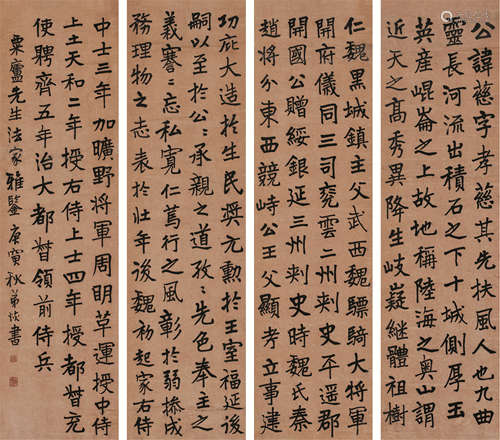 公諱慈字孝慈其先扶風人也九曲
靈長河流出積石之下十城側厚玉
英産崐崙之上故地稱陸海之奥山謂
近天之髙秀異降生岐嶷継體祖樹
仁魏黑城鎮主父武西魏驃騎大將軍
開府儀同三司兖雲二州刾史平遥郡
開國公贈綏銀延三州刾史時魏氏秦
趙將分東西競峙公王父顯考立事建
功庇大造於生民奨元勳於王室福延後
嗣以至於公〻承親之道孜〻先色奉主之
義謇〻忘私寛仁篤行之風彰於弱操成
務理物之志表於壯年後魏初起家右侍
中士三年加曠野將軍周明草運授中侍
上士天和二年授右侍上士四年授都督充
使聘齊五年治大都督領前侍兵
粟廬先生法家雅鑒庚寅秋弟書